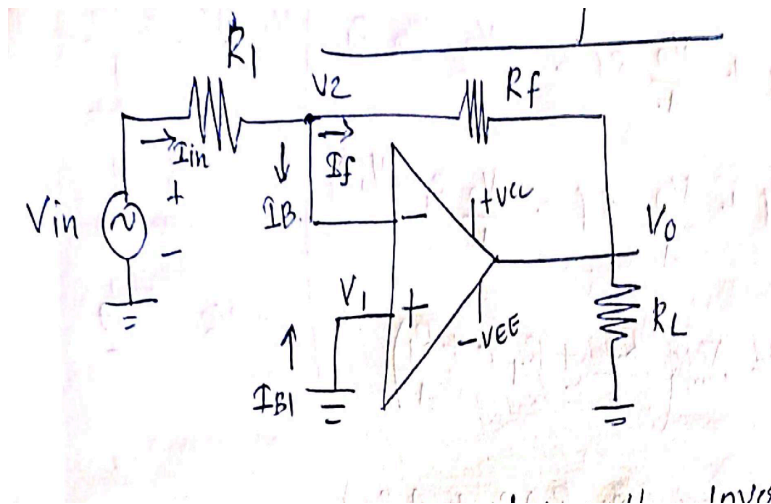 R1
V2
Rf
Iin
If
+
Vin
IB
-
+VCC
V0
V1
+
-VEE
RL
IB1